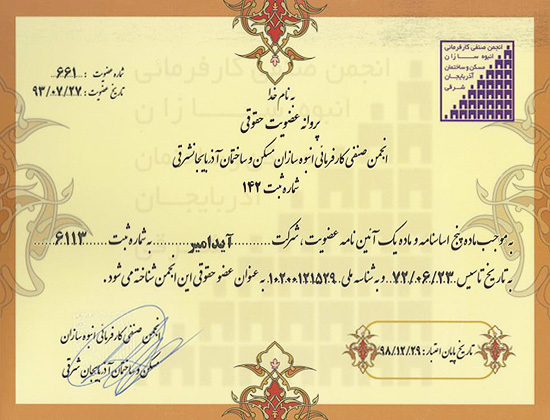 انجمن صنفی کارفرمائی
انبوه سازان
مسکن و ساختمان
آذربایجان
شرقی
شماره عضویت : ۶۶۱
تاریخ عضویت : ۹۳/۰۷/۲۷
به نام خدا
پروانه عضویت حقوقی
انجمن صنفی کارفرمائی انبوه سازان مسکن و ساختمان آذربایجانشرقی
شماره ثبت ۱۴۲
به موجب ماده پنج اساسنامه و ماده یک آئین نامه عضویت ، شرکت ......... آیدامیر ......... به شماره ثبت ..... ۶۱۱۳ .....
به تاریخ تاسیس ۷۲/۰۶/۲۳ و به شناسه ملی ۱۰۲۰۰۱۲۱۵۲۹ به عنوان عضو حقوقی این انجمن شناخته می شود .
انجمن صنفی کارفرمائی انبوه سازان
مسکن و ساختمان آذربایجان شرقی
تاریخ پایان اعتبار : ۹۸/۱۲/۲۹